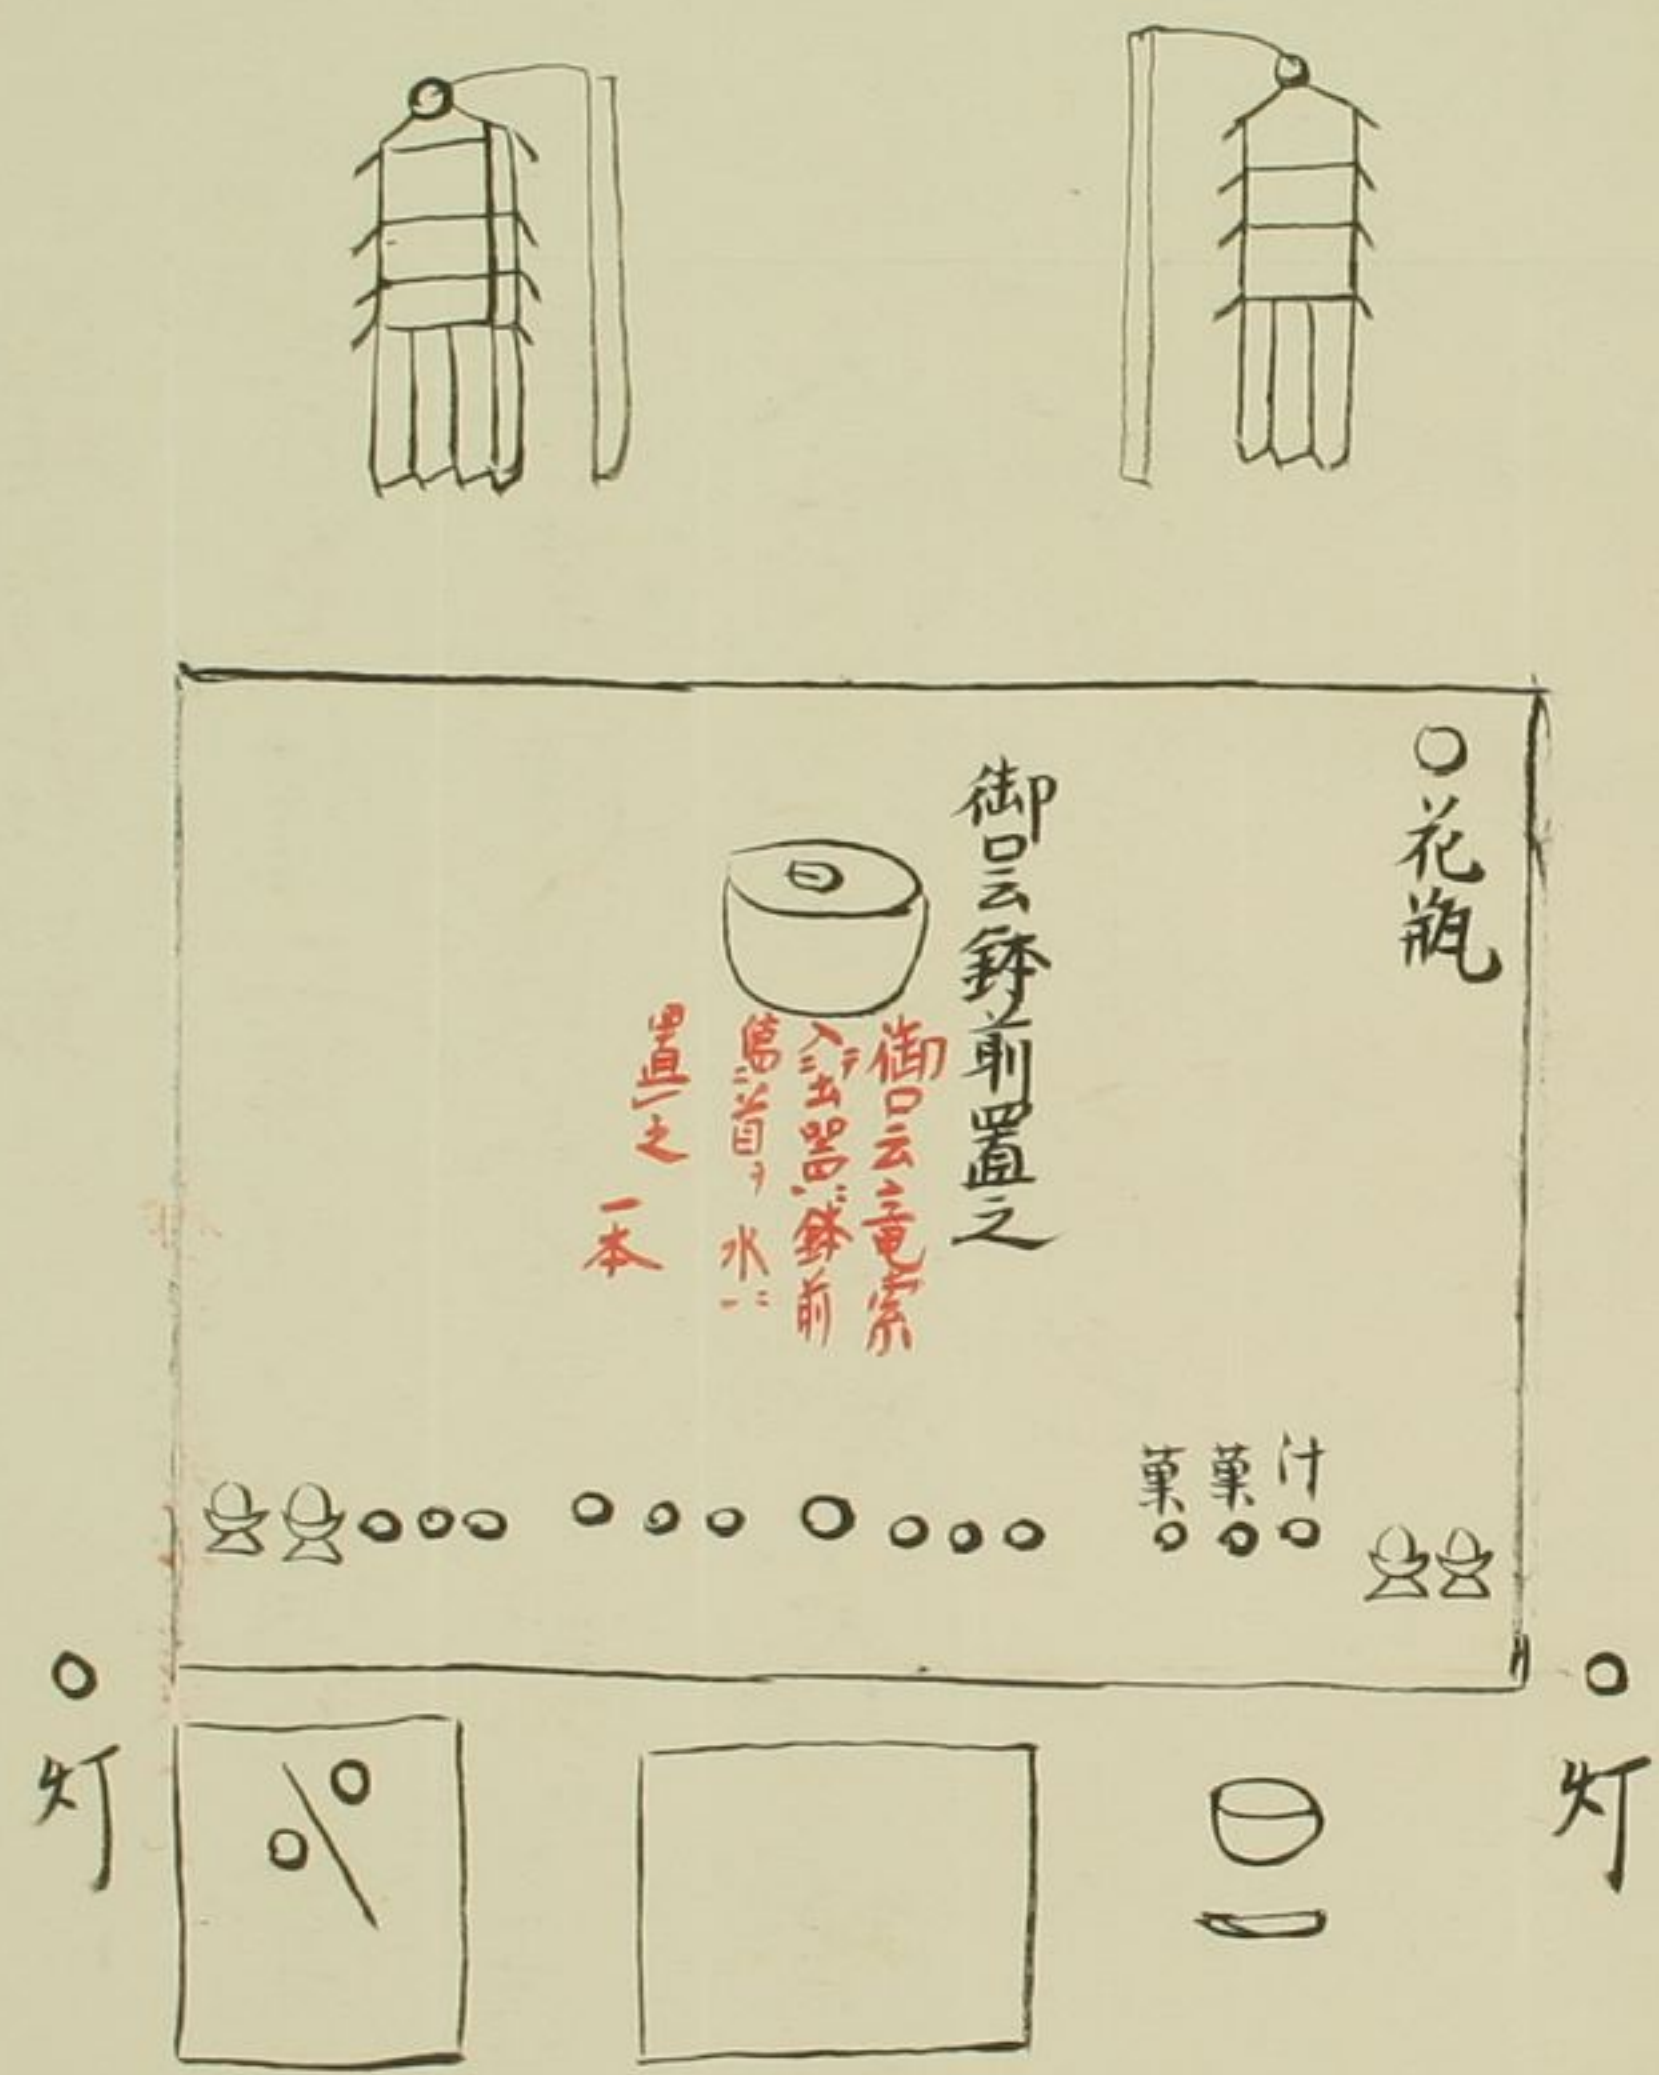 花瓶
御口云鉢前置之
御口云竜索
入テ土器ニ鉢前
水ニ
置之
一本
汁
菓
菓
灯
灯